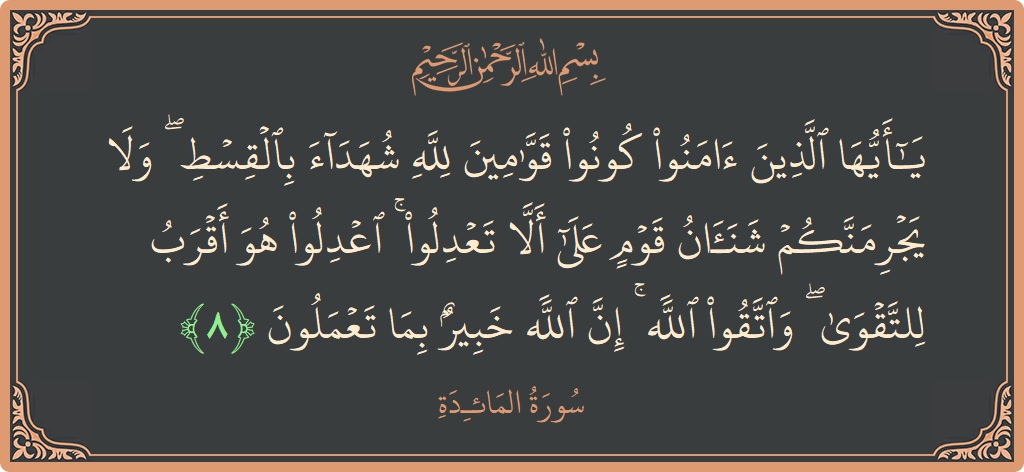 بِسْمِ اللَّهِ الرَّحْمَٰنِ الرَّحِيمِ
يَـٰٓأَيُّهَا ٱلَّذِينَ ءَامَنُوا۟ كُونُوا۟ قَوَّٰمِينَ لِلَّهِ شُهَدَآءَ بِٱلْقِسْطِ ۖ وَلَا
يَجْرِمَنَّكُمْ شَنَـَٔانُ قَوْمٍ عَلَىٰٓ أَلَّا تَعْدِلُوا۟ ۚ ٱعْدِلُوا۟ هُوَ أَقْرَبُ
لِلتَّقْوَىٰ ۖ وَٱتَّقُوا۟ ٱللَّهَ ۚ إِنَّ ٱللَّهَ خَبِيرٌۢ بِمَا تَعْمَلُونَ ﴿٨﴾
سُورَةُ المَائـِدَةِ